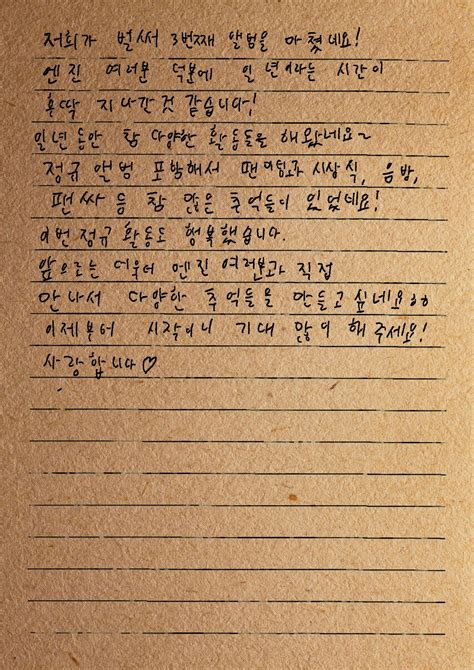 저희가 벌써 3번째 앨범을 마쳤네요!
엔진 여러분 덕분에 일년이라는 시간이
후딱 지나간것 같습니다!
일년동안 참 다양한 활동들을 해왔네요~
정규 앨범 포함해서 팬미팅과 시상식, 음방,
팬싸 등 참 많은 추억들이 있었네요!
이번 정규 활동도 행복했습니다.
앞으로는 더욱더 엔진 여러분과 직접
만나서 다양한 추억들을 만들고 싶네요ㅎㅎ
이제부터 시작이니 기대 많이 해주세요!
사랑합니다♡